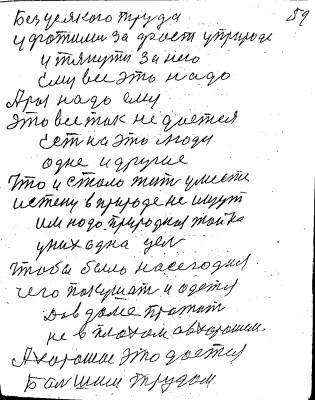 59
Без уеякого труда
у фотими за фости у природе
и тянути за него
Ему все это надо
Ары надо ему
Это все так не доется
Ест на это люди
одне и другие
Что и стало жит умести
истену в природе не ищут
им надо природная тайна
у них одна цел
Чтобы было насегодня
чего покушат и одетя
Да в доме прожит
не в плохом а в хорошем
А хорошое это доется
Болшим трудом